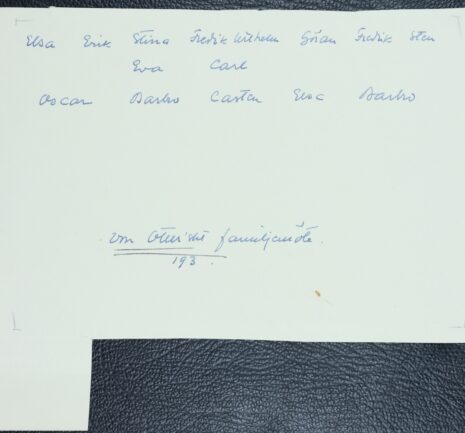 Elsa Erik Stina Fredrik Wilhelm Göran Fredrik Sten
Eva Carl
Oscar Barbro Casten Elsa Barbro
von familjemöte.
193 .